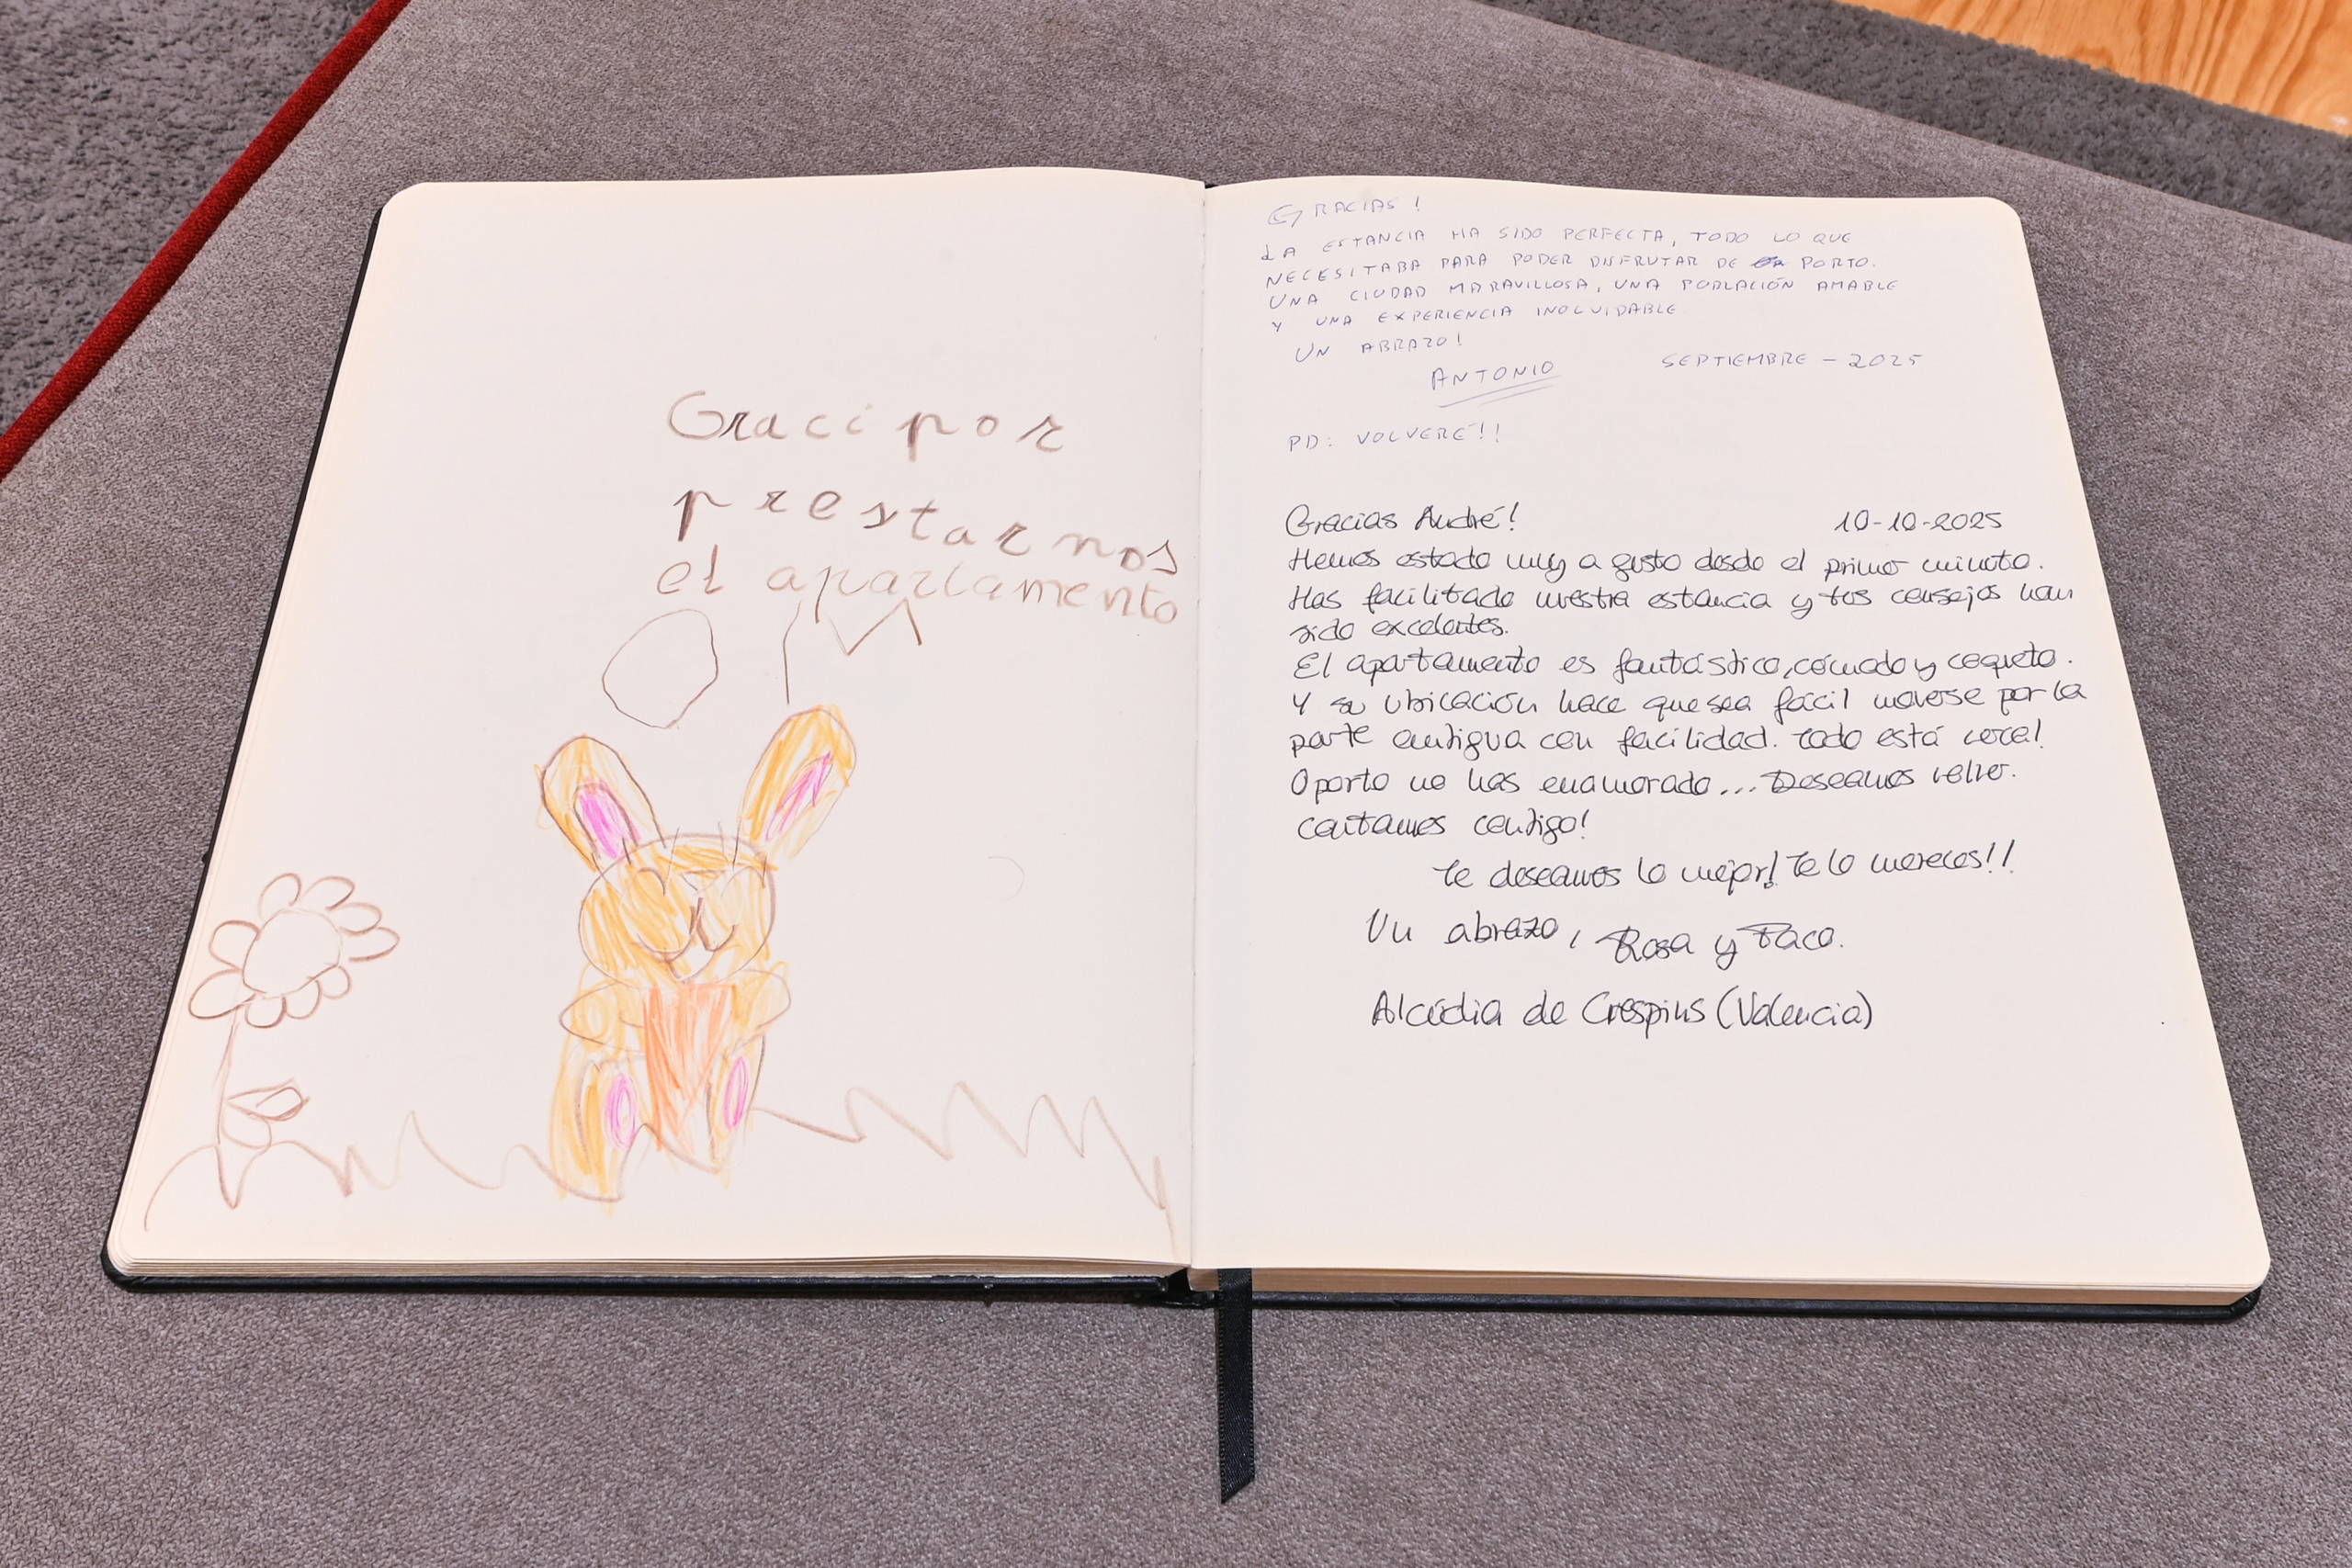 Graci por
prestarnos
el apartamento
GRACIAS!
LA ESTANCIA HA SIDO PERFECTA, TODO LO QUE
NECESITABA PARA PODER DISFRUTAR DE PORTO.
UNA CIUDAD MARAVILLOSA, UNA POBLACIÓN AMABLE
Y UNA EXPERIENCIA INOLVIDABLE.
UN ABRAZO!
ANTONIO SEPTIEMBRE - 2025
PD: VOLVERÉ!!
Gracias André! 10-10-2025
Hemos estado muy a gusto desde el primer minuto.
Has facilitado nuestra estancia y tus consejos han
sido excelentes.
El apartamento es fantástico, cómodo y coqueto.
Y su ubicación hace que sea fácil moverse por la
parte antigua con facilidad. Todo está cerca!
Oporto no has enamorado... Deseamos volver.
Contamos contigo!
Te deseamos lo mejor! Te lo mereces!!
Un abrazo, Rosa y Paco.
Alcúdia de Crespins (Valencia)